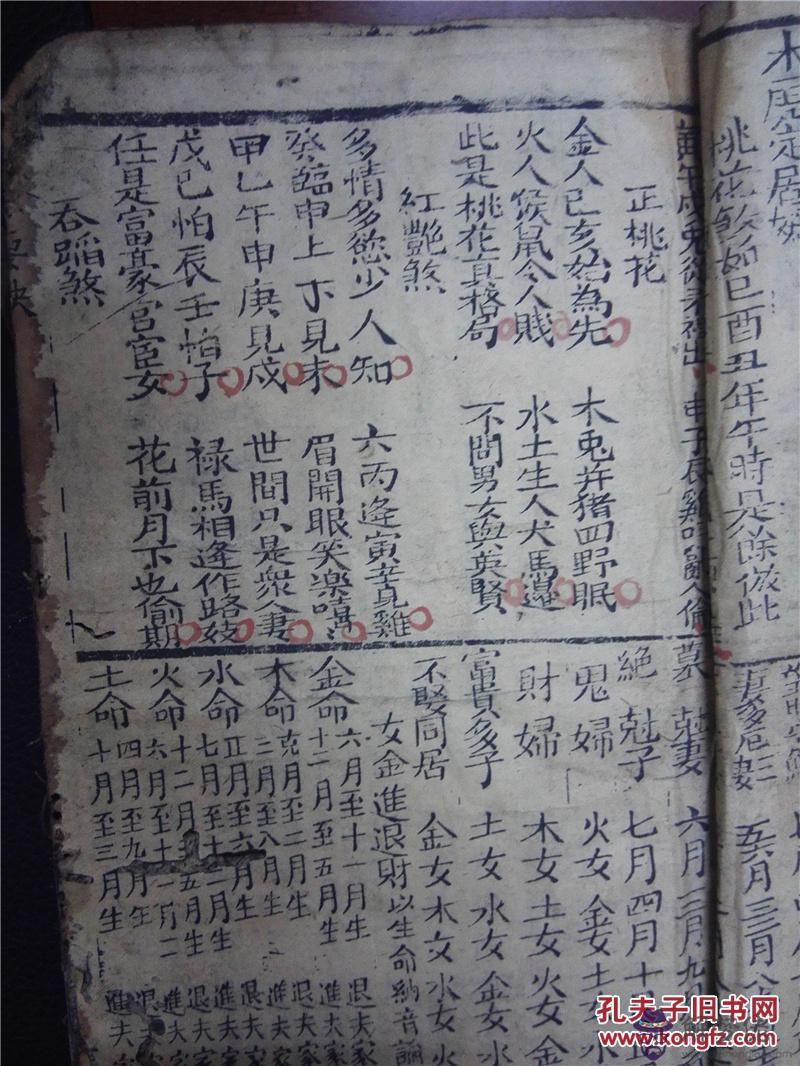 桃花煞如巳酉丑年午時是餘倣此
正桃花
金人巳亥始為先 木兎并猪四野眠
火人猴鼠令人賤 水土生人犬馬邊
此是桃花真格局 不問男女與英賢
紅艷煞
多情多慾少人知 六丙逢寅辛見雞
癸臨申上丁見未 眉開眼笑樂嘻嘻
甲乙午申庚見戌 世間只是衆人妻
戊己怕辰壬怕子 禄馬相逢作路妓
任是富豪官宦女 花前月下也偷期
吞蹈煞
墓 尅妻 六月 三月 九月
絶 尅子 七月 四月 十月
鬼婦 火女 金女 土女 水
財婦 木女 土女 火女 金
富貴多子 土女 水女 金女 水
不娶同居 金女 木女 水女 火
女金進退財以生命納音論
金命 六月至十一月生 退夫家
十二月至五月生 進夫家
木命 九月至二月生 退夫家
三月至八月生 進夫家
水命 正月至六月生 退夫家
七月至十二月生 進夫家
火命 十二月至五月生 退夫家
六月至十一月
土命 四月至九月生
十月至三月生 進夫家
孔夫子旧书网
www.kongfz.com